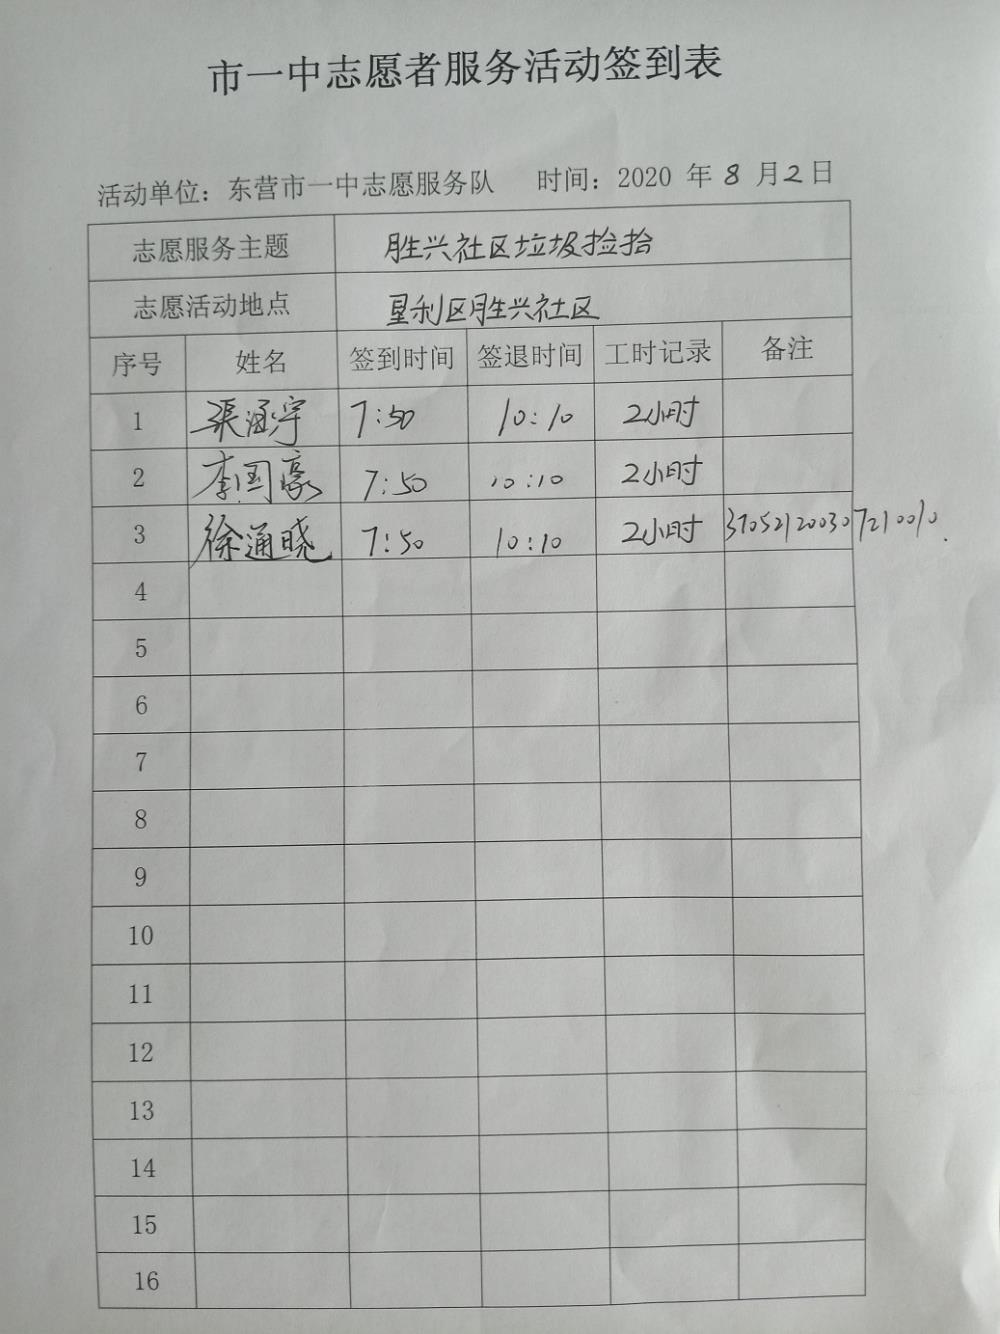 市一中志愿者服务活动签到表
活动单位：东营市一中志愿服务队 时间：2020 年 8 月 2 日
志愿服务主题 胜兴社区垃圾捡拾
志愿活动地点 垦利区胜兴社区
序号 姓名 签到时间 签退时间 工时记录 备注
1 张涵宇 7:50 10:10 2小时
2 李国豪 7:50 10:10 2小时
3 徐通晓 7:50 10:10 2小时 370521200307210010.
4
5
6
7
8
9
10
11
12
13
14
15
16